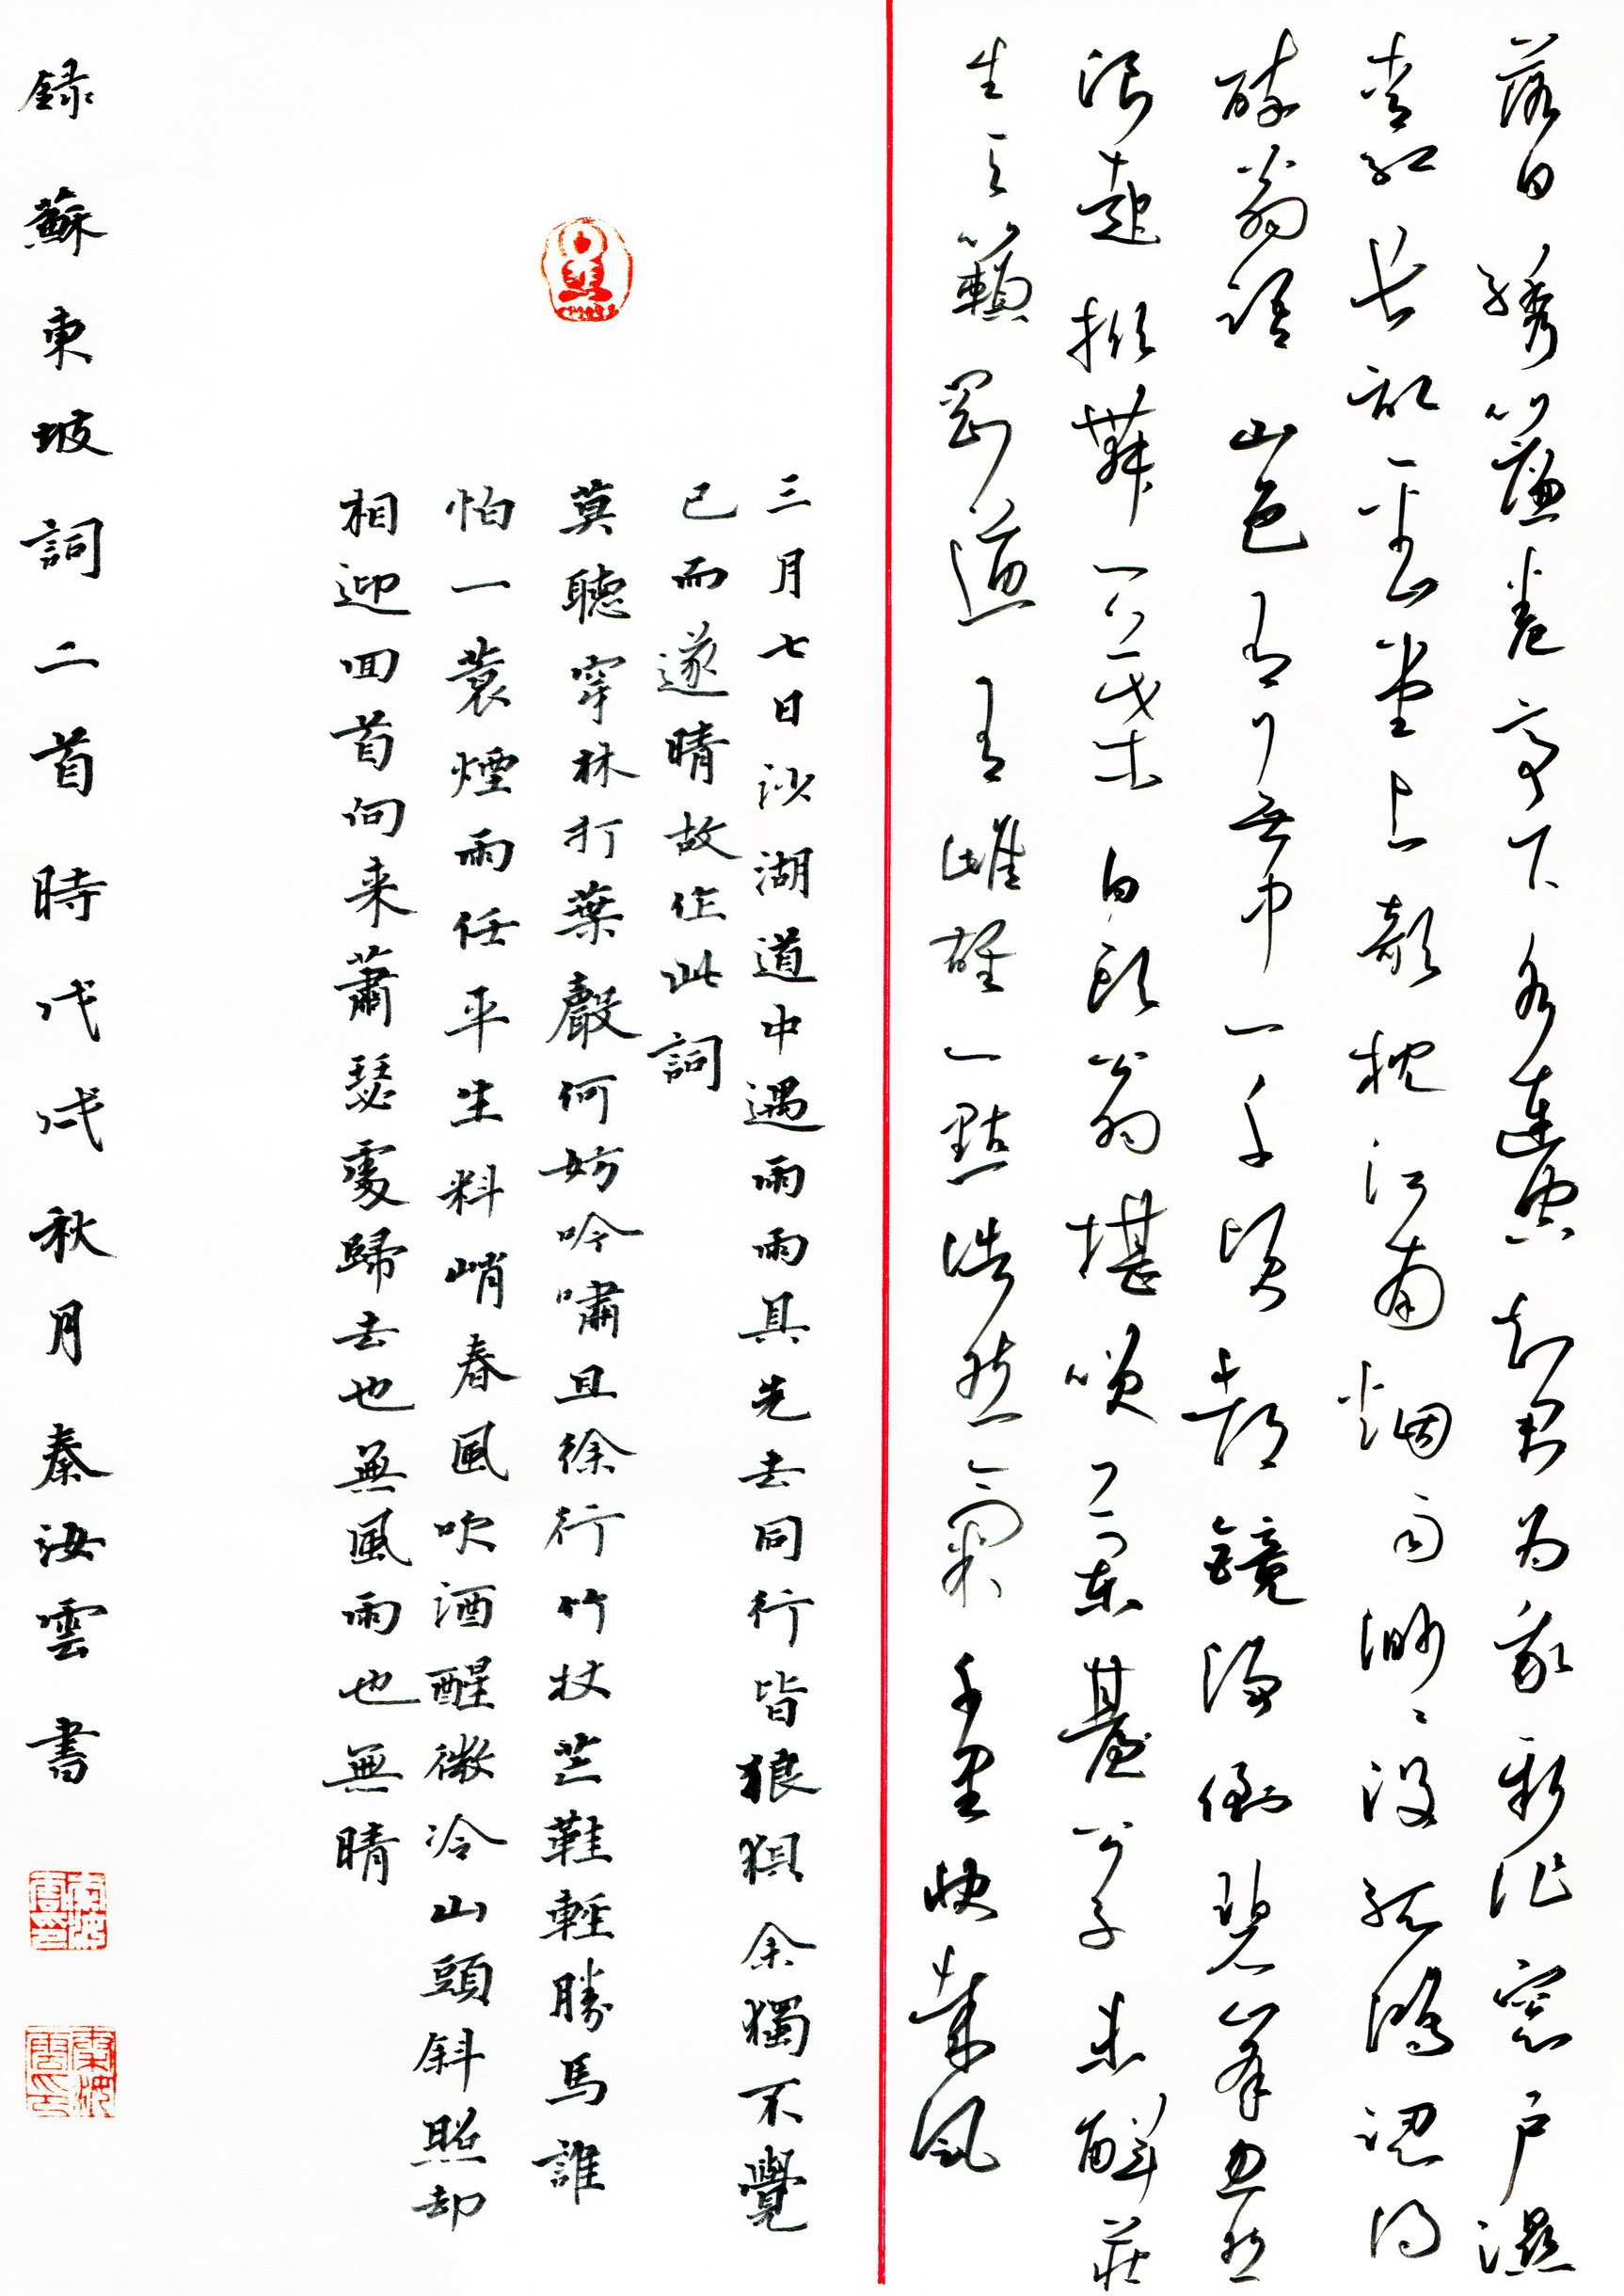 落日繡簾卷亭下水連空知君為我新作窓戶濕
青紅長記平山堂上欹枕江南烟雨渺〻沒孤鴻認得
醉翁語山色有無中一千頃都鏡淨倒碧峯忽然
浪起掀舞一葉白頭翁堪笑蘭臺公子未解莊
生天籟剛道有雌雄一點浩然氣千里快哉風
三月七日沙湖道中遇雨雨具先去同行皆狼狽余獨不覺
已而遂晴故作此詞
莫聽穿林打葉聲何妨吟嘯且徐行竹杖芒鞋輕勝馬誰
怕一蓑煙雨任平生料峭春風吹酒醒微冷山頭斜照却
相迎回首向来蕭瑟處歸去也無風雨也無晴
録蘇東坡詞二首時代代秋月秦汝雲書